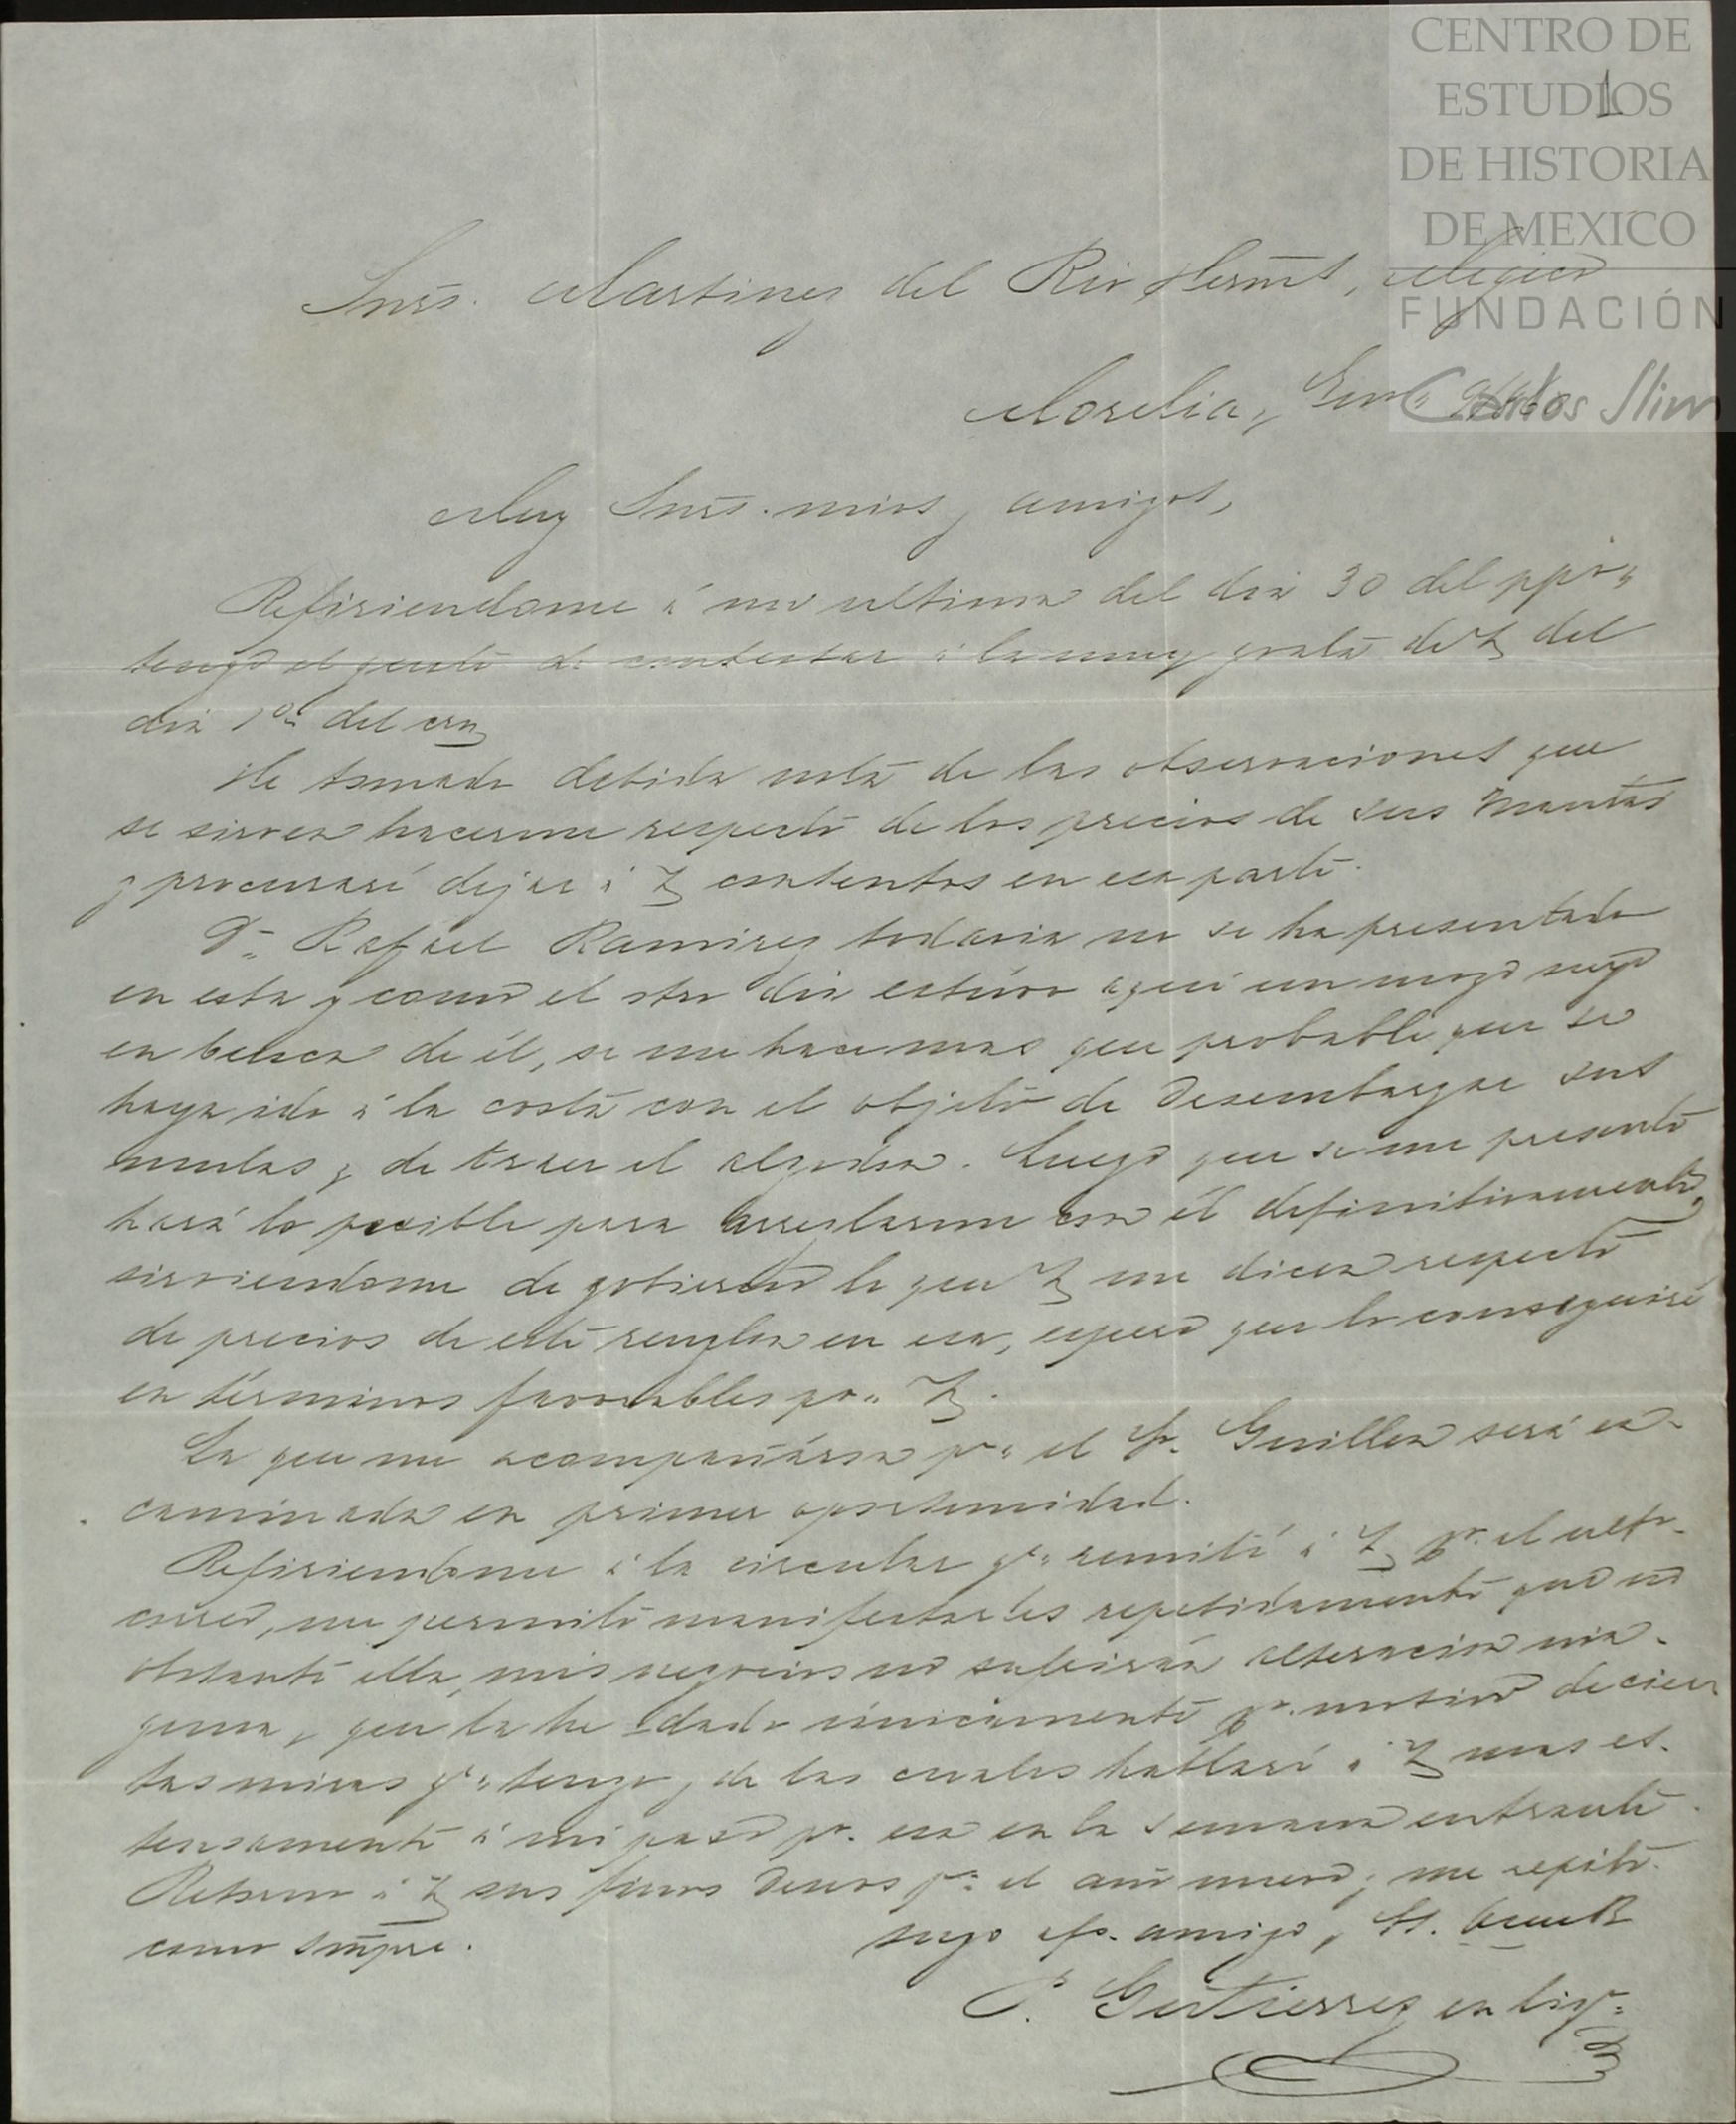 CENTRO DE
ESTUDIOS
DE HISTORIA
DE MEXICO
FUNDACIÓN
Carlos Slim
1
Snrs. Martinez del Rio Herms, Mejico
Morelia,
Muy Snrs. mios y amigos,
Refiriendome á mi ultima del dia 30 del ppdo.,
tengo el gusto de contestar á la muy grata de V. del
dia 1o. del
He tomado debida nota de las observaciones que
se sirven hacerme respecto de los precios de sus Mantas
y procuraré dejar á V. contentos en esa parte.
Dn. Rafael Ramirez todavia no se ha presentado
en esta y como el otro dia estúvo aqui un mozo suyo
en busca de él, se me hace mas que probable que se
haya ido á la costa con el objeto de desembargar sus
mulas y de traer el algodon. Luego que se me presente
haré lo posible para arreglarme con él definitivamente,
sirviendome de gobierno lo que V. me dicen respecto
de precios de este renglon en esa, espero que lo conseguiré
en términos favorables pa. V.
La que me acompañáron pa. el Sr. Guillen será en-
caminada en primer oportunidad.
Refiriendome á la circular qe. remití á V. pr. el ulto.
correo, me permito manifestarles repetidamente que no
obstante ella, mis negocios no sufrirán alteracion nin-
guna, y que la he dado únicamente pr. motivo de cier-
tas miras qe. tengo, y de las cuales hablaré á V. mas es-
tensamente á mi paso pr. esa en la semana entrante.
Retorno á V. sus finos deseos pa. el año nuevo; y me repito
como smpre.
suyo afo. amigo y
P. Gutierrez en liqn.